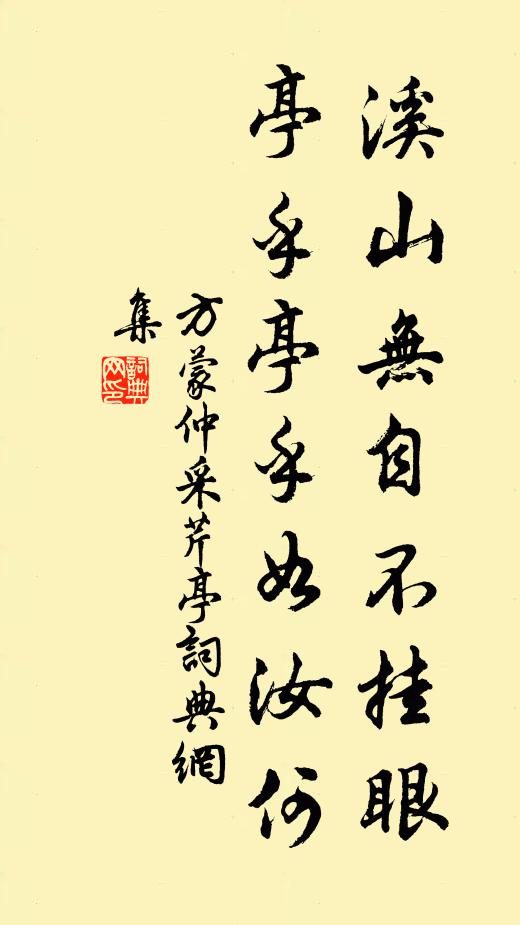 溪山無自不挂眼
亭乎亭乎如汝何
方蒙仲采芹亭詞典網
集
詞典
网印